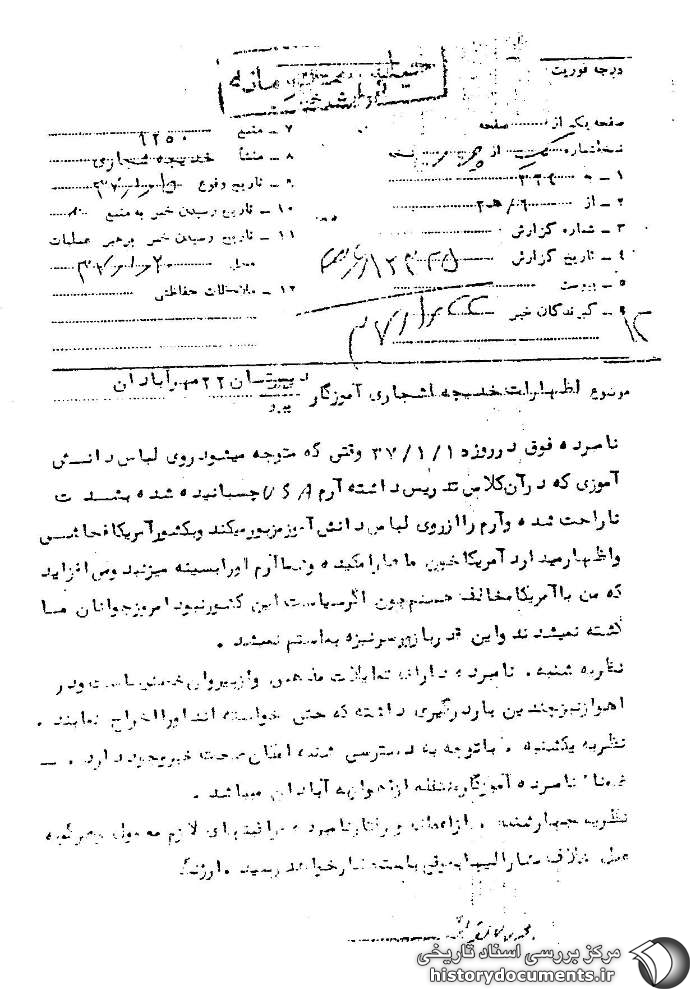 درجه فوریت
صفحه یک از صفحه
نسخه شماره از نسخه
۱ - به ۳۴۱
۲ - از ۶ / ه‍ ۲
۳ - شماره گزارش
۴ - تاریخ گزارش
۵ - پیوست
۶ - گیرندگان خبر
۷ - منبع ۹۲۵۰
۸ - منشأ خدیجه شجاری
۹ - تاریخ وقوع
۱۰ - تاریخ رسیدن خبر به منبع
۱۱ - تاریخ رسیدن خبر برهبر عملیات
محل
۱۲ - ملاحظات حفاظتی
موضوع اظهارات خدیجه اشجاری آموزگار دبستان ۲۲ مهر آبادان
نامبرده فوق در روزه ۳۷/۱/۱ وقتی که متوجه میشود روی لباس دانش
آموزی که در آن کلاس تدریس داشته آرم USA چسبانیده شده بشدت
ناراحت شده و آرم را از روی لباس دانش آموز مزبور میکند و بکشور آمریکا فحاشی
و اظهار میدارد آمریکا خون ما را مکیده و شما آرم او را بسینه میزنید و می افزاید
که من با آمریکا مخالف هستم چون اگر سیاست این کشور نبود امروز جوانان ما
کشته نمیشدند و این قدر با زور سر نیزه به ما ستم نمیشد .
نظریه شنبه . نامبرده دارای تمایلات مذهبی و از پیروان خمینی است و در
اهواز نیز چندین بار درگیری داشته که حتی خواسته اند او را اخراج نمایند .
نظریه یکشنبه . با توجه به دسترسی شنبه امکان صحت خبر وجود دارد . -
ضمنا نامبرده آموزگار منتقله از اهواز به آبادان میباشد .
نظریه چهارشنبه . از اعمال و رفتار نامبرده مراقبتهای لازم معمول و هرگونه
عمل خلاف مشارالیها بموقع باستحضار خواهد رسید . ارژنگ
مرکز بررسی اسناد تاریخی
historydocuments.ir